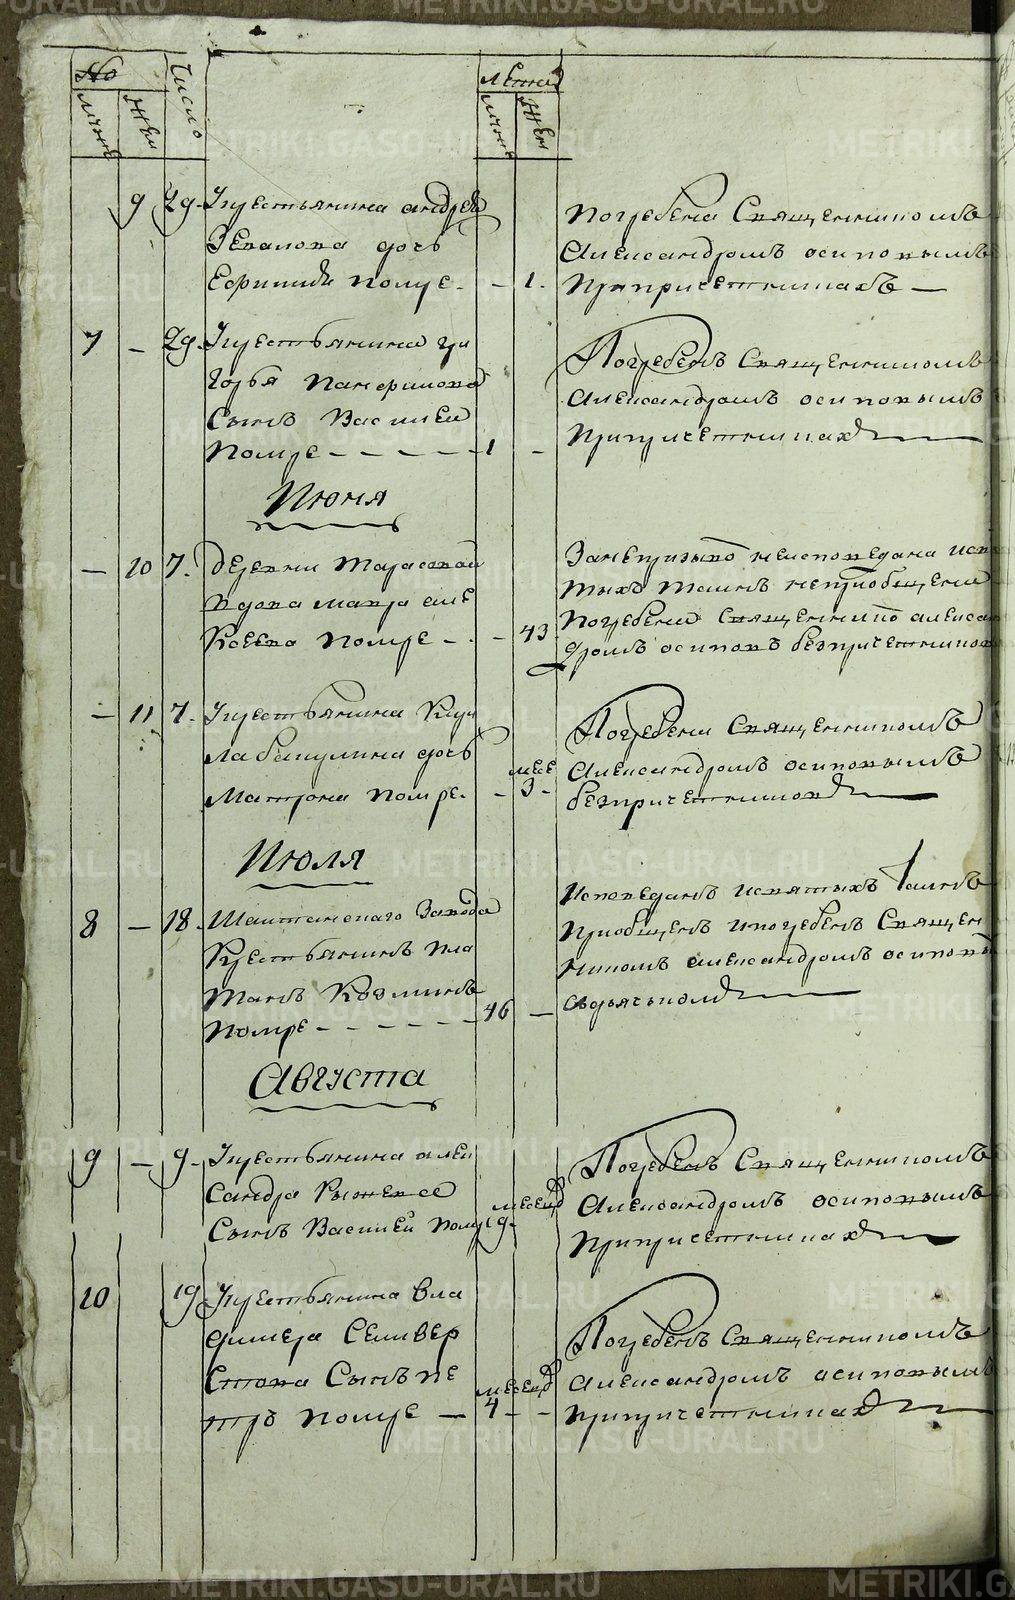 №
Число
Летъ
муж
жен
муж
жен
9 29 Крестьянина андрея
дочь
помре - 1
Погребена Священникомъ
Александромъ осиповымъ
Припричетникахъ
7 - 29 Крестьянина гри
горья
Сынъ Василей
Помре 1 -
Погребенъ Священникомъ
Александромъ осиповымъ
Припричетникахъ
Июня
- 10 7 Деревни Тарасовой
вдова мавра але
ксеева помре - 43
неисповедана исвя
тыхъ таинъ неприобщена
Погребена Священнико алекса
дромъ осиповъ безпричетников
- 11 7 Крестьянина Кири
ла дочь
Матрона помре - месе 3 -
Погребена Священникомъ
Александромъ осиповымъ
безпричетников
Июля
8 - 18 Шайтанскаго Завода
Крестьянинъ пла
танъ Козминъ
помре 46 -
Исповеданъ исвятыхъ Таинъ
Приобщенъ ипогребенъ Священ
никомъ александромъ осипов
сдьячьком
Августа
9 - 9 Крестьянина алек
сандра
Сынъ Василей помре месец 9
Погребенъ Священникомъ
Александромъ осиповымъ
Припричетниках
10 19 Крестьянина вла
димера Селивер
стова Сынъ пе
тръ помре - месец 4 -
Погребенъ Священникомъ
Александромъ осиповымъ
Припричетниках
METRIKI.GASO-URAL.RU